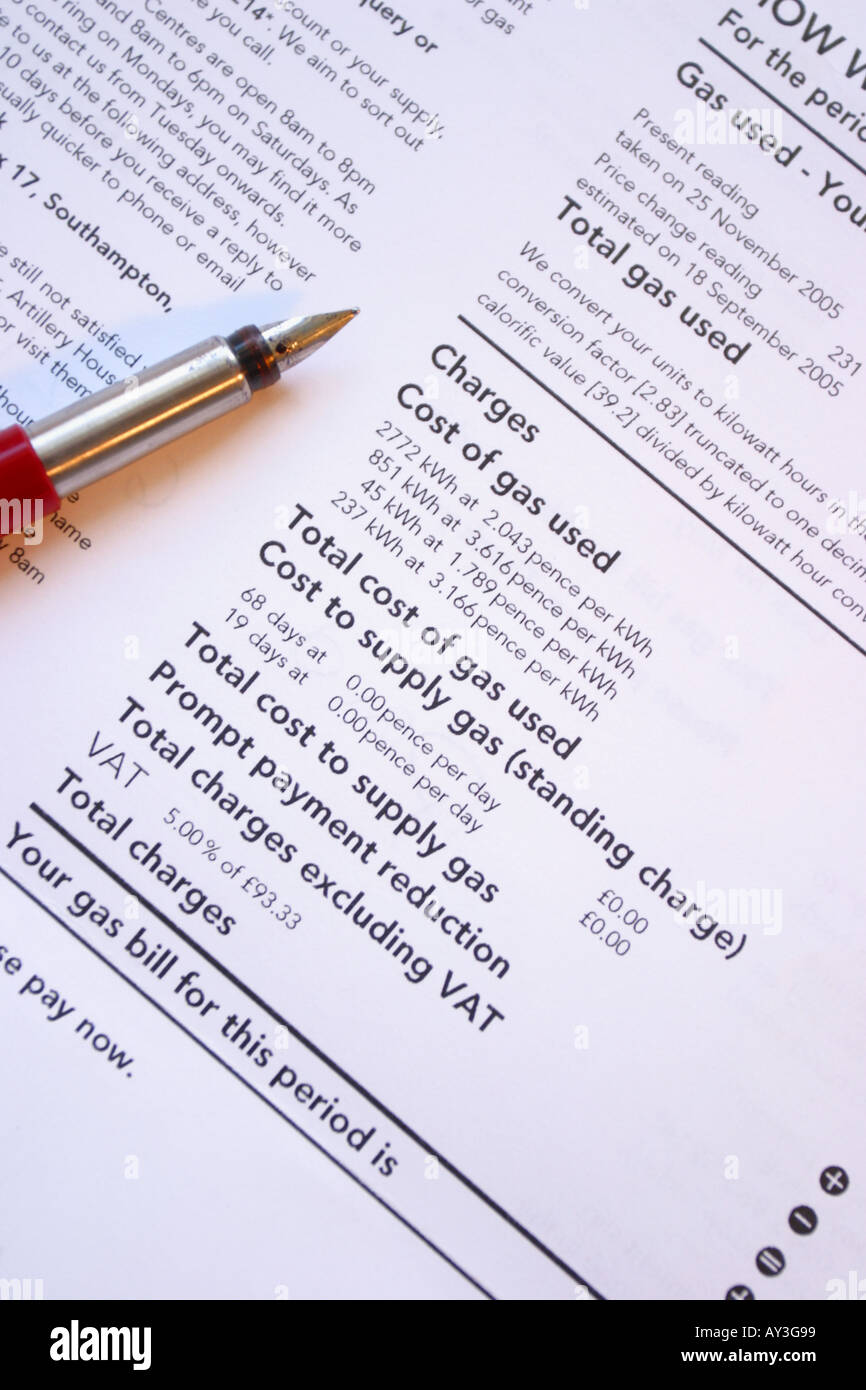 count or your supply,
you call.
Z14*. We aim to sort out
Centres are open 8am to 8pm
and 8am to 6pm on Saturdays. As
ring on Mondays, you may find it more
contact us from Tuesday onwards.
e to us at the following address, however
10 days before you receive a reply to
sually quicker to phone or email
x 17, Southampton,
e still not satisfied
Artillery Hous
or visit them
hour
name
y 8am
query or
or gas
HOW W
For the perio
Gas used - You
Present reading
taken on 25 November 2005
Price change reading
estimated on 18 September 2005
231
Total gas used
We convert your units to kilowatt hours in th
conversion factor [2.83] truncated to one decim
calorific value [39.2] divided by kilowatt hour conv
Charges
Cost of gas used
2772 kWh at 2.043 pence per kWh
851 kWh at 3.616 pence per kWh
45 kWh at 1.789 pence per kWh
237 kWh at 3.166 pence per kWh
Total cost of gas used
Cost to supply gas (standing charge)
68 days at 0.00 pence per day £0.00
19 days at 0.00 pence per day £0.00
Total cost to supply gas
Prompt payment reduction
Total charges excluding VAT
VAT 5.00% of £93.33
Total charges
Your gas bill for this period is
se pay now.
alamy
Image ID: AY3G99
www.alamy.com